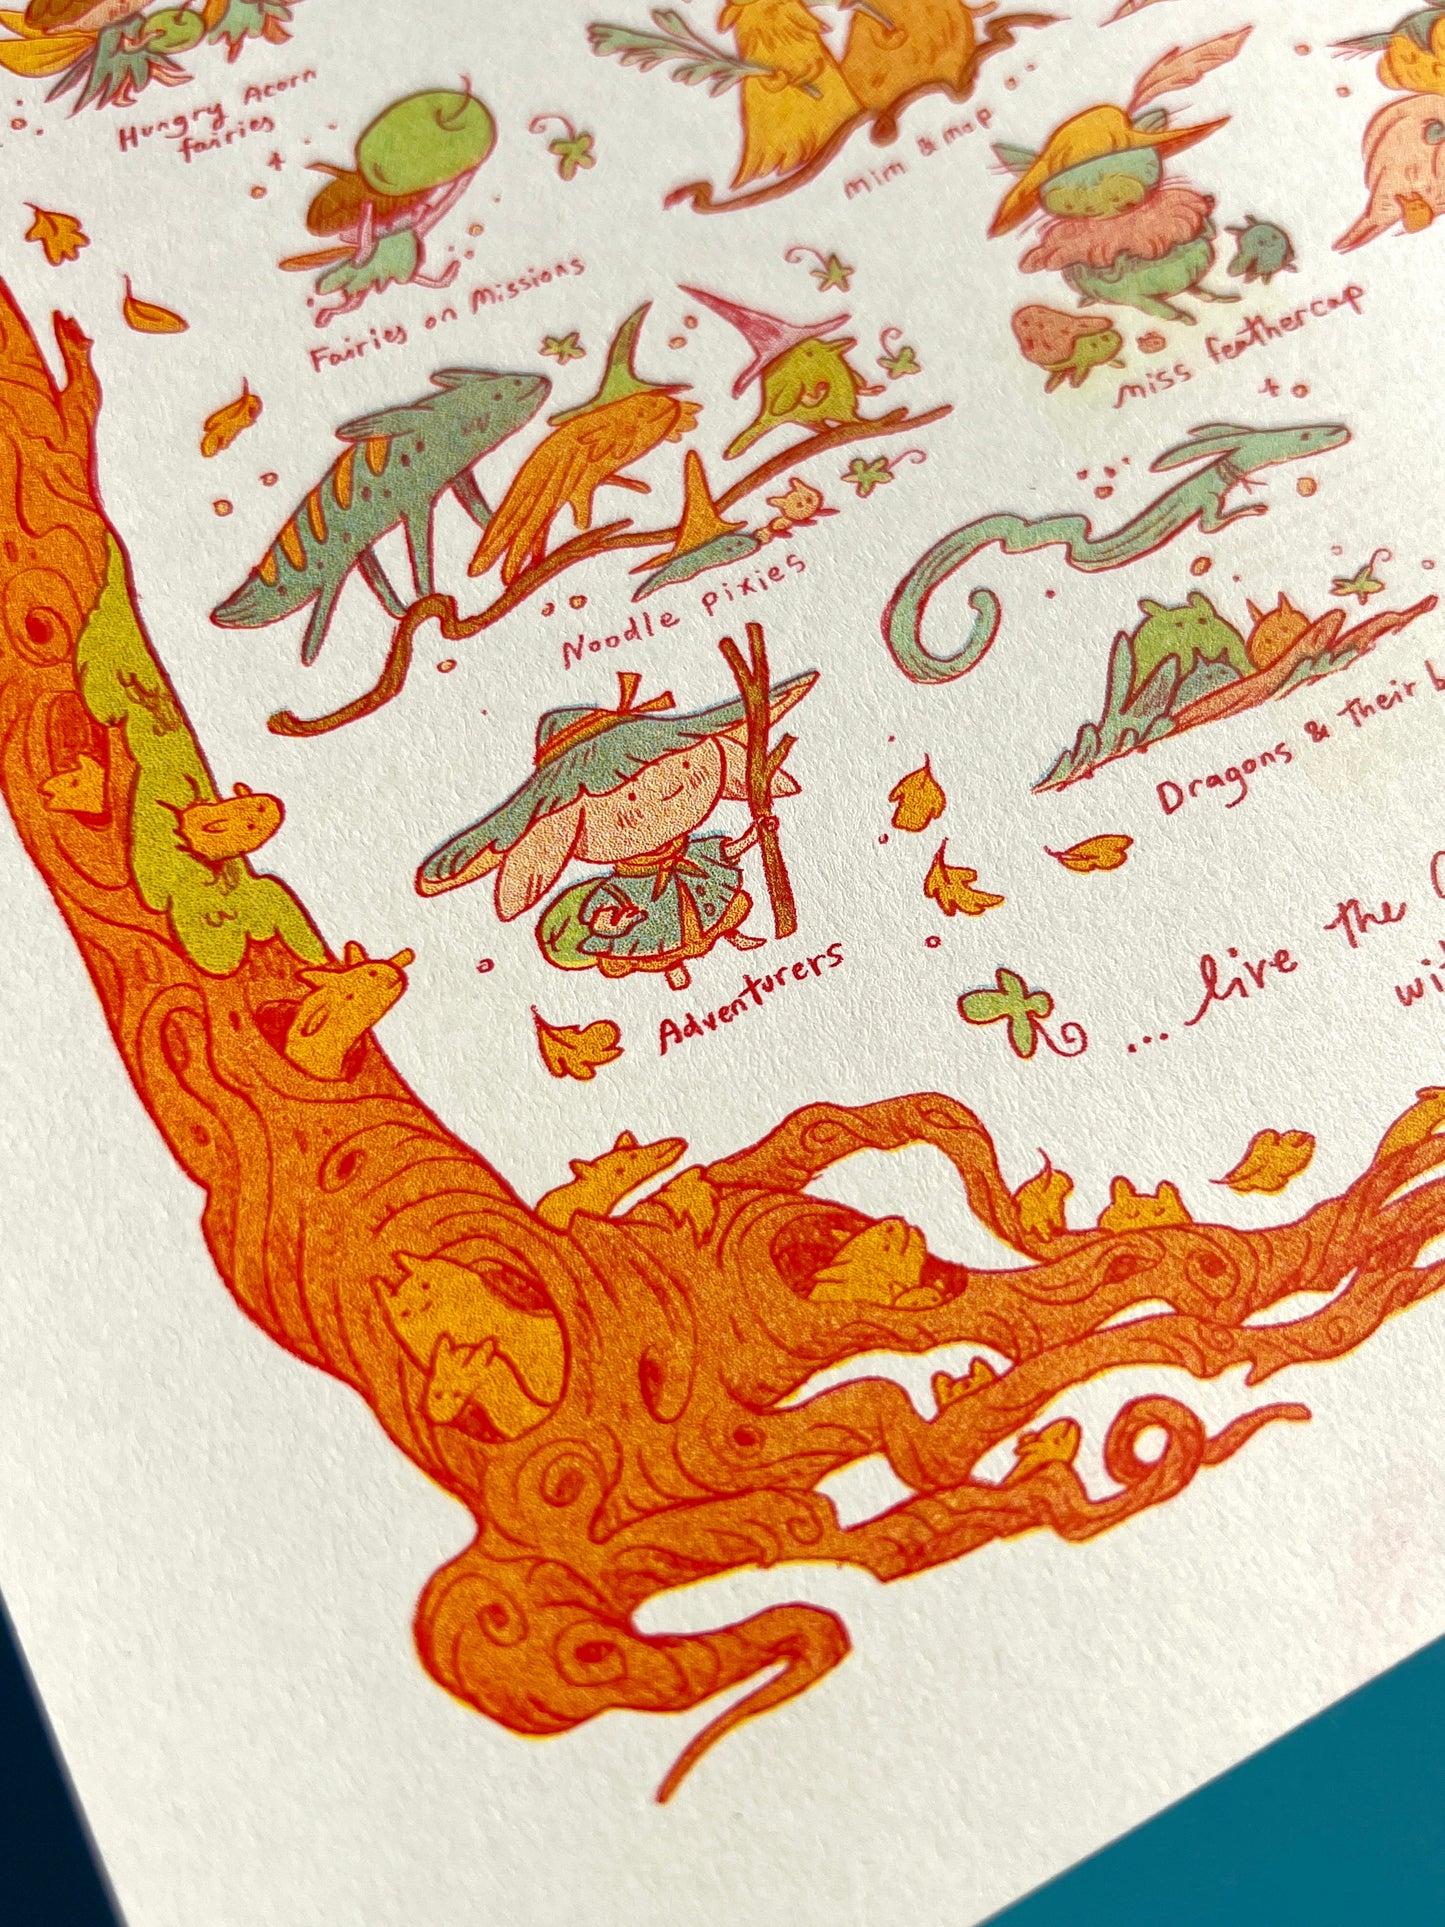 Hungry Acorn
fairies
mim & map
Fairies on Missions
miss feathercap
Noodle pixies
Dragons & their
Adventurers
... live the